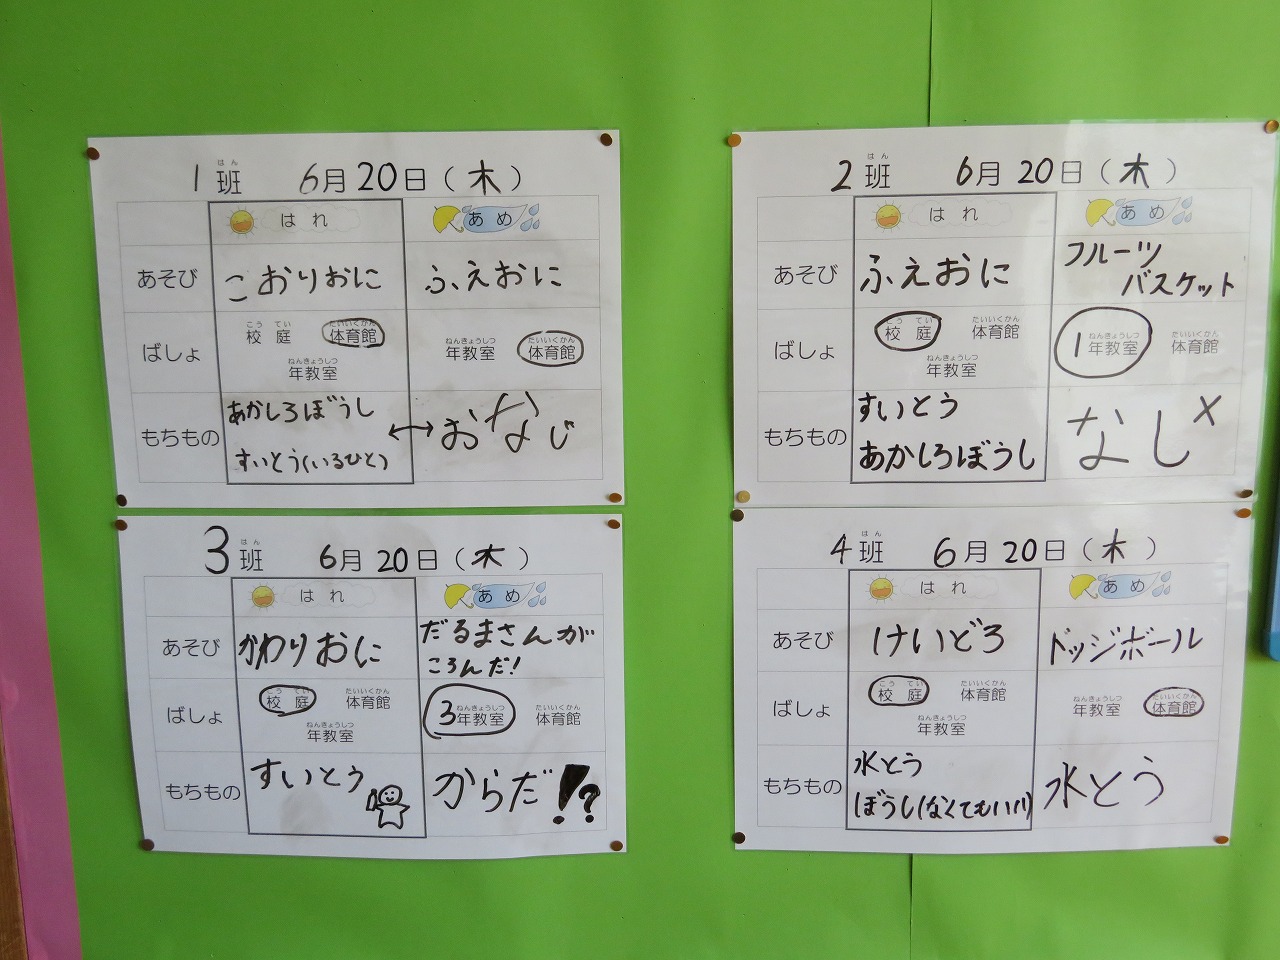 1班 6月20日(木)
はん
はれ あめ
あそび こおりおに ふえおに
こうてい たいいくかん ねんきょうしつ たいいくかん
ばしょ 校庭 体育館 年教室 体育館
ねんきょうしつ
年教室
もちもの あかしろぼうし
すいとう(いるひと)
↔おなじ
2班 6月20日(木)
はん
はれ あめ
あそび ふえおに フルーツ
バスケット
こうてい たいいくかん ねんきょうしつ たいいくかん
ばしょ 校庭 体育館 1年教室 体育館
ねんきょうしつ
年教室
もちもの すいとう
あかしろぼうし
なし×
3班 6月20日(木)
はん
はれ あめ
あそび かわりおに だるまさんが
ころんだ!
こうてい たいいくかん ねんきょうしつ たいいくかん
ばしょ 校庭 体育館 3年教室 体育館
ねんきょうしつ
年教室
もちもの すいとう からだ!?
4班 6月20日(木)
はん
はれ あめ
あそび けいどろ ドッジボール
こうてい たいいくかん ねんきょうしつ たいいくかん
ばしょ 校庭 体育館 年教室 体育館
ねんきょうしつ
年教室
もちもの 水とう
ぼうし(なくてもいい)
水とう